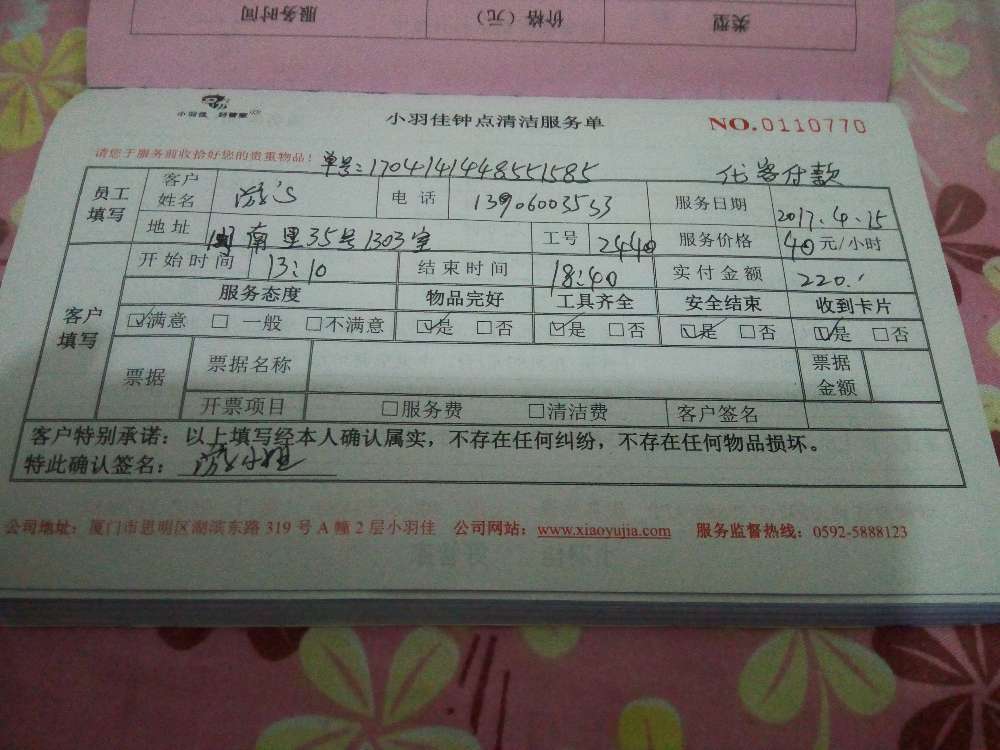 服务时间 价格（元） 类型
小羽佳 好管家
小羽佳钟点清洁服务单 NO.0110770
请您于服务前收拾好您的贵重物品！ 单号:1704141448551585 代客付款
员工填写 客户姓名 游's 电话 13906003553 服务日期 2017.4.15
地址 闽南里35号1303室 工号 2440 服务价格 40元/小时
客户填写 开始时间 13:10 结束时间 18:40 实付金额 220.
服务态度 物品完好 工具齐全 安全结束 收到卡片
☑满意 □一般 □不满意 ☑是 □否 ☑是 □否 ☑是 □否 ☑是 □否
票据 票据名称 票据金额
开票项目 □服务费 □清洁费 客户签名
客户特别承诺：以上填写经本人确认属实，不存在任何纠纷，不存在任何物品损坏。
特此确认签名：游小姐
公司地址：厦门市思明区湖滨东路 319 号 A 幢 2 层小羽佳 公司网站：www.xiaoyujia.com 服务监督热线：0592-5888123